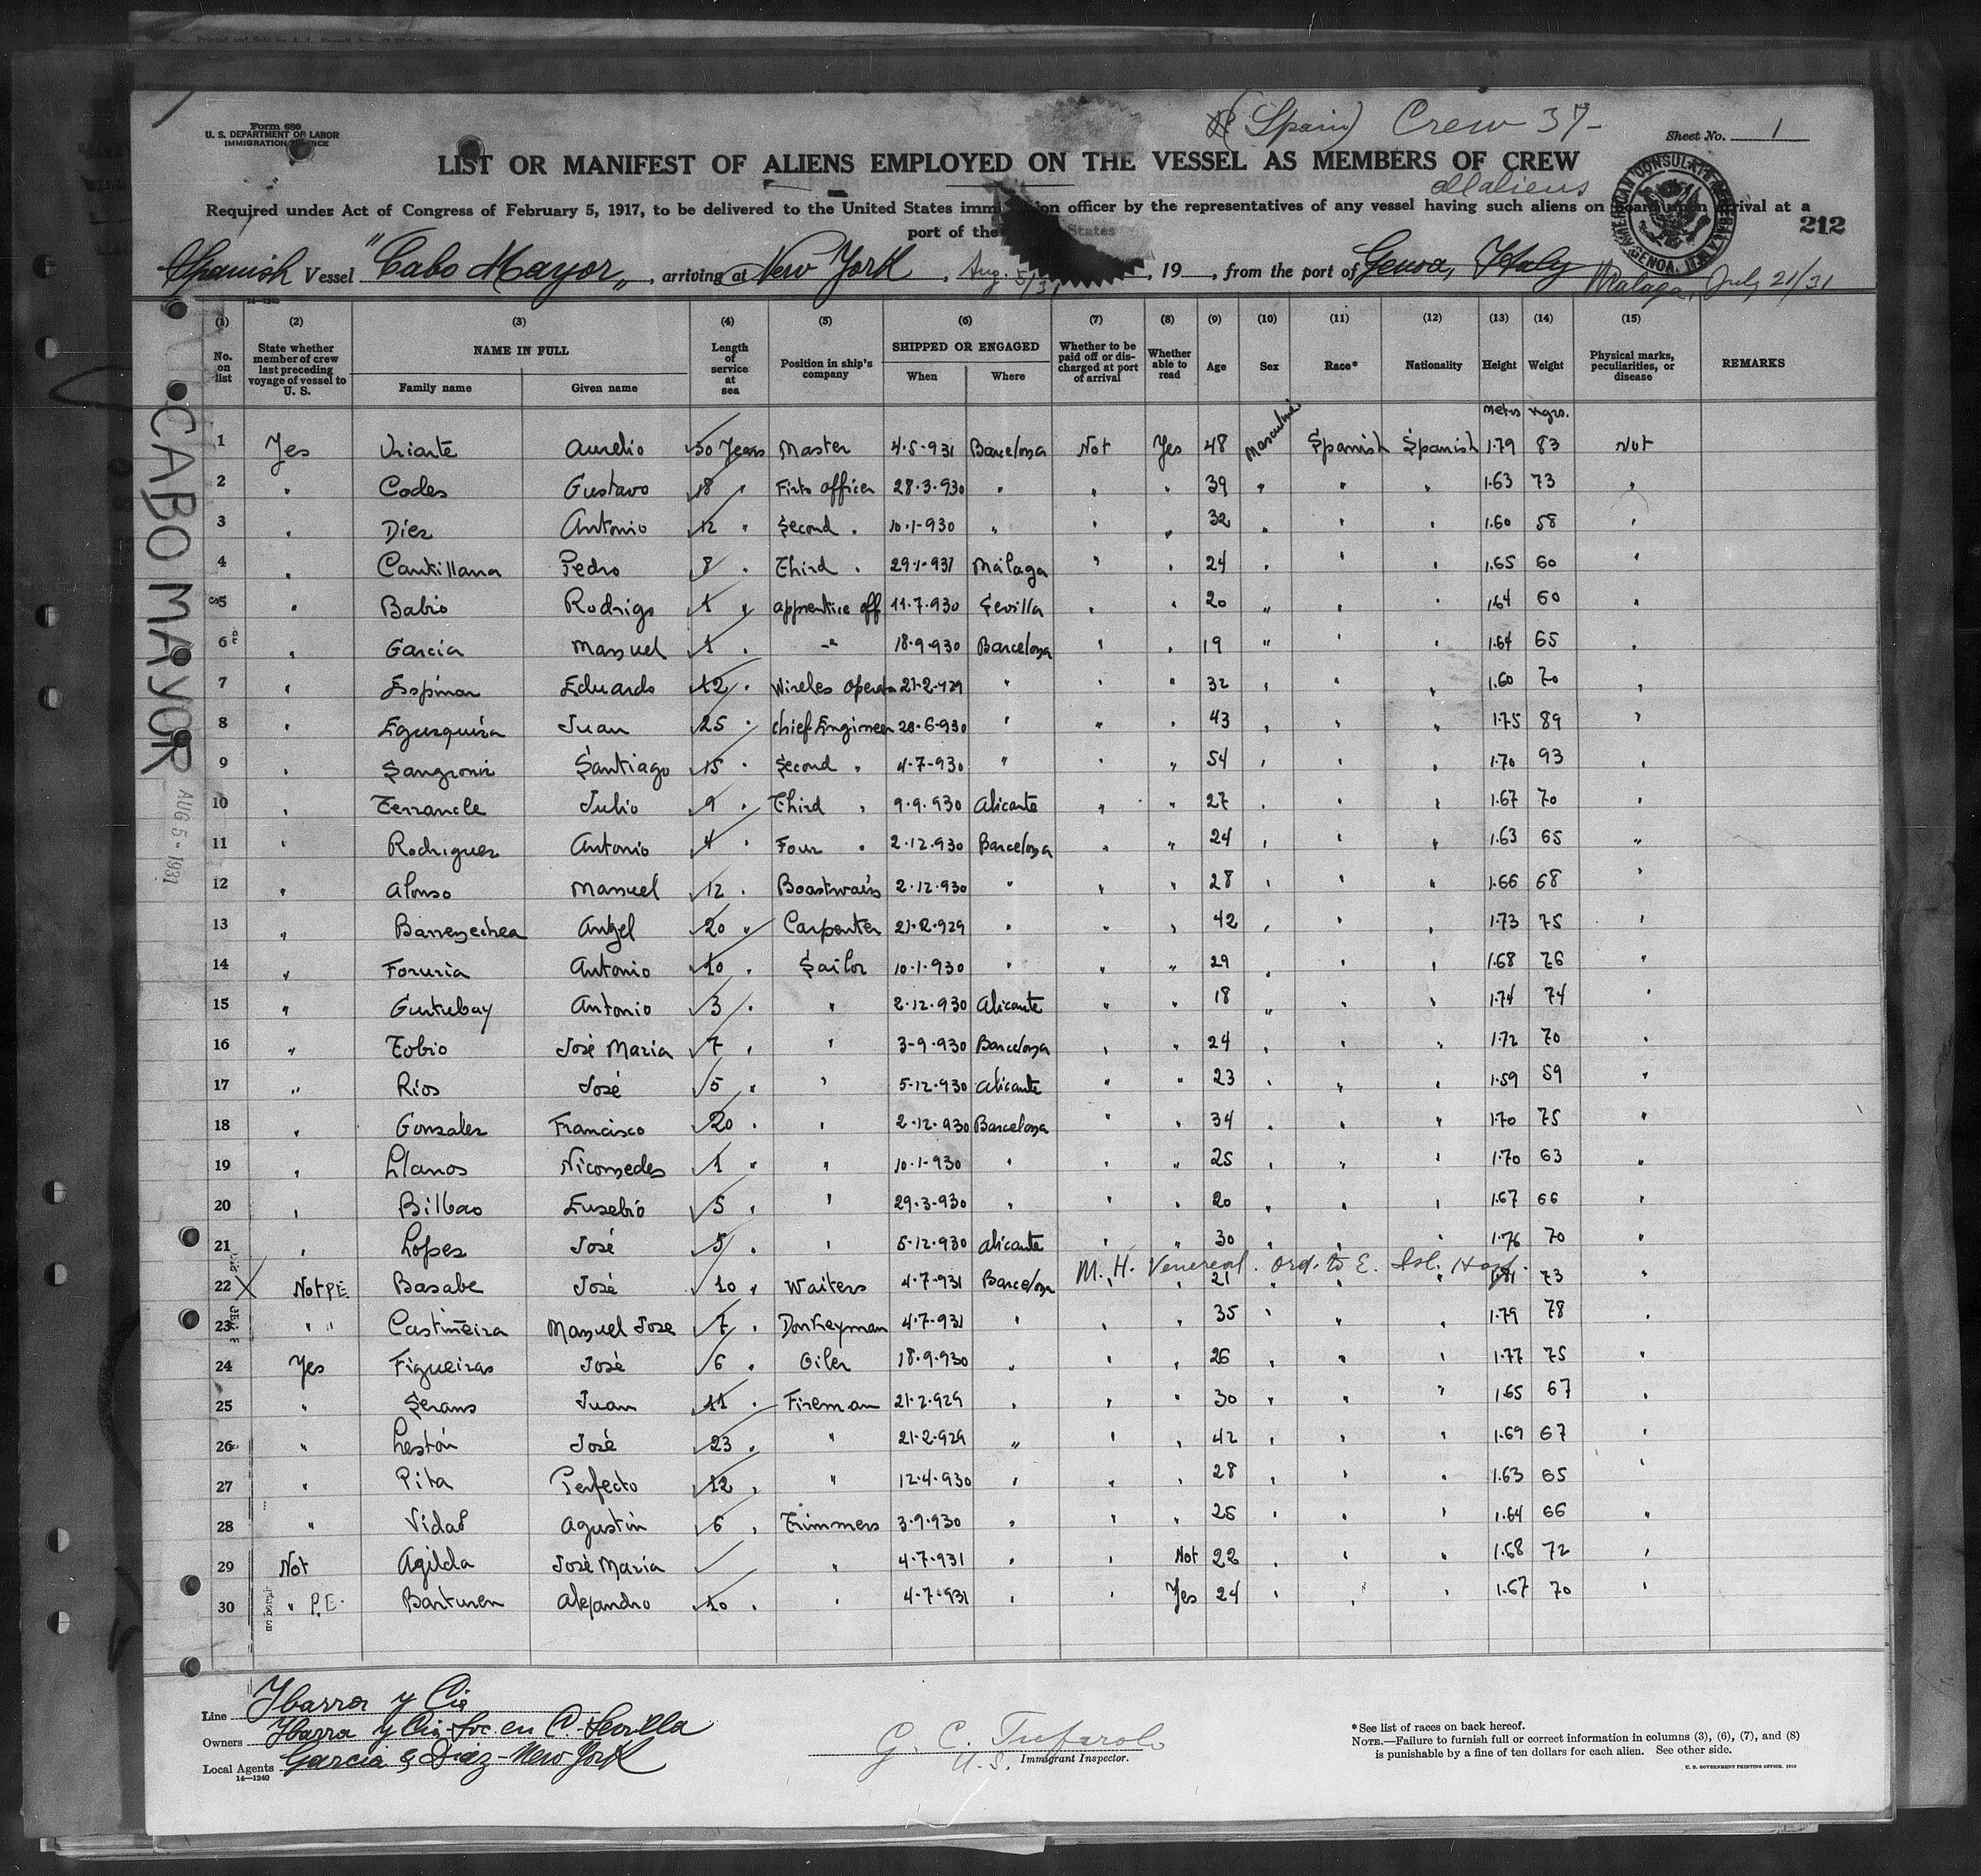 (Spain) Crew 37-
Form 686
U. S. DEPARTMENT OF LABOR
IMMIGRATION
Sheet No. 1
LIST OR MANIFEST OF ALIENS EMPLOYED ON THE VESSEL AS MEMBERS OF CREW
all aliens
Required under Act of Congress of February 5, 1917, to be delivered to the United States officer by the representatives of any vessel having such aliens on arrival at a
port of the States
212
AMERICAN CONSULATE GENERAL GENOA, ITALY
Spanish Vessel "Cabo Mayor", arriving at New York, Aug. 5/31, 19, from the port of Genoa, Italy
Malaga, July 21/31
14-1240
(1) (2) (3) (4) (5) (6) (7) (8) (9) (10) (11) (12) (13) (14) (15)
No. on list | State whether member of crew last preceding voyage of vessel to U. S. | NAME IN FULL | Length of service at sea | Position in ship's company | SHIPPED OR ENGAGED | Whether to be paid off or discharged at port of arrival | Whether able to read | Age | Sex | Race* | Nationality | Height | Weight | Physical marks, peculiarities, or disease | REMARKS
Family name | Given name | When | Where
metrs kgrs.
1 Yes Uriarte Aurelio 30 Years Master 4-5-931 Barcelona Not Yes 48 Masculine Spanish Spanish 1.79 83 Not
2 " Codes Gustavo 18 " Firts officer 28-3-930 " " " 39 " " " 1.63 73 "
3 " Diez Antonio 12 " Second " 10-1-930 " " " 32 " " " 1.60 58 "
4 " Cantillana Pedro 8 " Third " 29-1-931 Málaga " " 24 " " " 1.65 60 "
5 " Babio Rodrigo 1 " apprentice off 11-7-930 Sevilla " " 20 " " " 1.64 60 "
6 " Garcia Manuel 1 " -"- 18-9-930 Barcelona " " 19 " " " 1.64 65 "
7 " Espinar Eduardo 12 " Wireles Operator 21-2-929 " " " 32 " " " 1.60 70 "
8 " Egurquiza Juan 25 " Chief Engineer 28-6-930 " " " 43 " " " 1.75 89 "
9 " Sangroniz Santiago 15 " Second " 4-7-930 " " " 54 " " " 1.70 93 "
10 " Terrancle Julio 9 " Third " 9-9-930 Alicante " " 27 " " " 1.67 70 "
11 " Rodriguez Antonio 4 " Four " 2-12-930 Barcelona " " 24 " " " 1.63 65 "
12 " Alonso Manuel 12 " Boastwains 2-12-930 " " " 28 " " " 1.66 68 "
13 " Barrenechea Angel 20 " Carpenter 21-2-929 " " " 42 " " " 1.73 75 "
14 " Foruria Antonio 10 " Sailor 10-1-930 " " " 29 " " " 1.68 76 "
15 " Gurtubay Antonio 3 " " 2-12-930 Alicante " " 18 " " " 1.74 74 "
16 " Tobio José Maria 7 " " 3-9-930 Barcelona " " 24 " " " 1.72 70 "
17 " Rios José 5 " " 5-12-930 Alicante " " 23 " " " 1.59 59 "
18 " Gonzalez Francisco 20 " " 2-12-930 Barcelona " " 34 " " " 1.70 75 "
19 " Llanos Nicomedes 1 " " 10-1-930 " " " 25 " " " 1.70 63 "
20 " Bilbao Eusebio 5 " " 29-3-930 " " " 20 " " " 1.67 66 "
21 " Lopez José 5 " " 5-12-930 Alicante " " 30 " " " 1.76 70 "
M. H. Venereal. Ord. to E. Isl. Hosp.
22 X Not P.E. Basabe José 10 " Waiters 4-7-931 Barcelona " " 21 " " " 73 "
23 " " Castiñeira Manuel Jose 7 " Donkeyman 4-7-931 " " " 35 " " " 1.79 78 "
24 Yes Figueiras José 6 " Oiler 18-9-930 " " " 26 " " " 1.77 75 "
25 " Serans Juan 11 " Fireman 21-2-929 " " " 30 " " " 1.65 67 "
26 " Lestón José 23 " " 21-2-929 " " " 42 " " " 1.69 67 "
27 " Pita Perfecto 12 " " 12-4-930 " " " 28 " " " 1.63 65 "
28 " Vidal Agustin 6 " Trimmers 3-9-930 " " " 25 " " " 1.64 66 "
29 Not Agilda José Maria " 4-7-931 " " Not 22 " " " 1.68 72 "
30 " P.E. Barturen Alejandro 10 " " 4-7-931 " " Yes 24 " " " 1.67 70 "
CABO MAYOR
AUG 5 - 1931
Line Ibarra y Cia
Owners Ibarra y Cia Soc. en C. Sevilla
Local Agents Garcia & Diaz - New York
14-1240
G. C. Tufarolo
U.S. Immigrant Inspector.
*See list of races on back hereof.
NOTE.—Failure to furnish full or correct information in columns (3), (6), (7), and (8)
is punishable by a fine of ten dollars for each alien. See other side.
U. S. GOVERNMENT PRINTING OFFICE. 1929